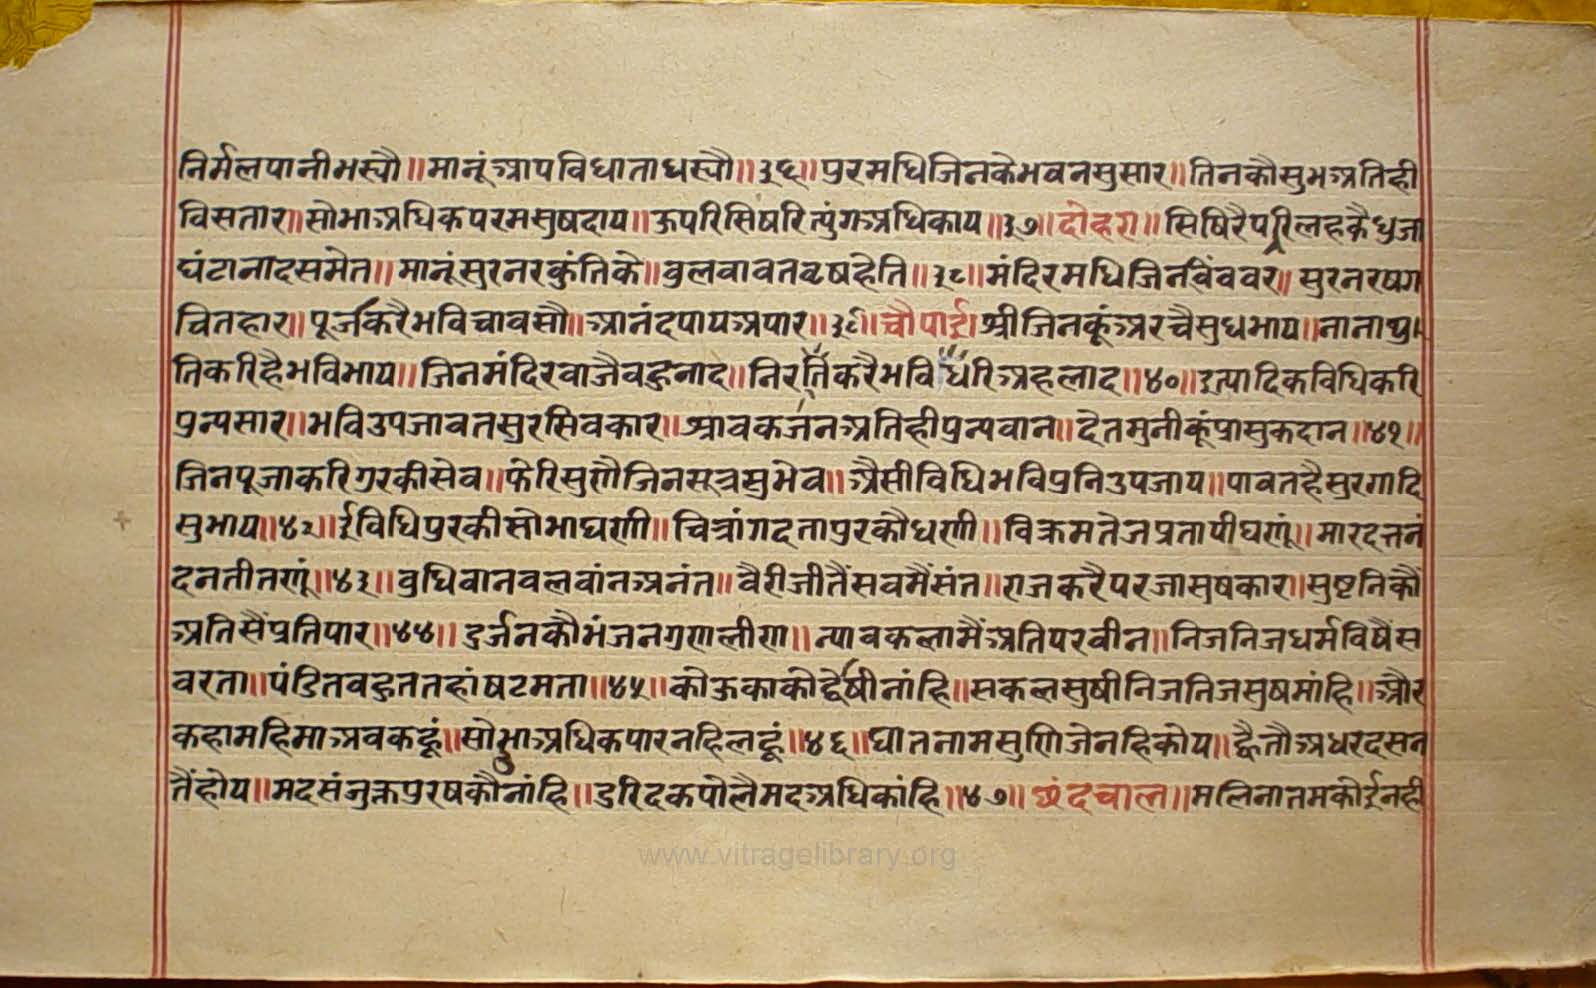 निर्मलपानीभस्यौ॥मानूंआपविधाताधस्यौ॥३६॥पुरमधिजिनकेभवनसुसार॥तिनकौसुभअतिही
विसतार॥सोभाअधिकपरमसुषदाय॥ऊपरिसिषरित्युंगअधिकाय॥३७॥दोहरा॥सिषिरैपरिलहकैधुजा
घंटानादसमेत॥मानूंसुरनरकुंतिके॥वुलवावतवृषहेति॥३८॥मंदिरमधिजिनविंववर॥सुरनरषग
चितहार॥पूर्जकरैभविचावसौ॥आनंदपायअपार॥३९॥चौपाई॥श्रीजिनकूंअरचैसुधभाय॥नानाथु
तिकरिहैभविभाय॥जिनमंदिरवाजैवहुनाद॥निरतिकरैभविधरिअहलाद॥४०॥इत्यादिकविधिकरि
पुन्यसार॥भविउपजावतसुरसिवकार॥श्रावकजनअतिहीपुन्यवान॥देतमुनीकूंप्रासुकदान॥४१॥
जिनपूजाकरिगुरकीसेव॥फेरिसुणौजिनसूत्रसुभेव॥अैसीविधिभविपुनिउपजाय॥पावतहैसुरगादि
सुभाय॥४२॥ईविधिपुरकीसोभाघणी॥चित्रांगदतापुरकौधणी॥विक्रमतेजप्रतापीघणूं॥मारदत्तनं
दनतीतणूं॥४३॥वुधिवानवलवांनअनंत॥वैरीजीतैंसवमैंसंत॥राजकरैपरजासुषकार॥सुष्टनिकौं
अतिसैंप्रतिपार॥४४॥दुर्जनकौभंजनगुणलीण॥न्यावकलामैंअतिपरवीन॥निजनिजधर्मविषैस
वरता॥पंडितवहुततहांषटमता॥४५॥कोऊकाकोद्वेषीनांहि॥सकलसुषीनिजतिजसुषमांहि॥और
कहामहिमाअवकहूं॥सोभाअधिकपारनहिलहूं॥४६॥घाातनामसुणिजेनहिकोय॥द्वैतौअधरदसन
तैंहोय॥मदसंजुक्तपुरषकौनांहि॥दुरिदकपोलैमदअधिकांहि॥४७॥छंदचाल॥मलिनातमकोईनही
www.vitragelibrary.org